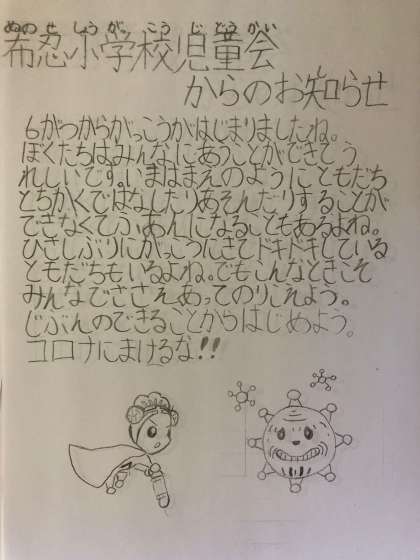 ぬのせしょうがっこうじどうかい
布忍小学校児童会
からのお知らせ
6がつからがっこうがはじまりましたね。
ぼくたちはみんなにあうことができてう
れしいです。いまはまえのように ともだち
とちかくではなしたりあそんだりすることが
できなくてふあんになることもあるよね。
ひさしぶりにがっこうにきてドキドキしている
ともだちもいるよね。でもこんなときこそ
みんなでささえあってのりこえよう。
じぶんのできることからはじめよう。
コロナにまけるな!!